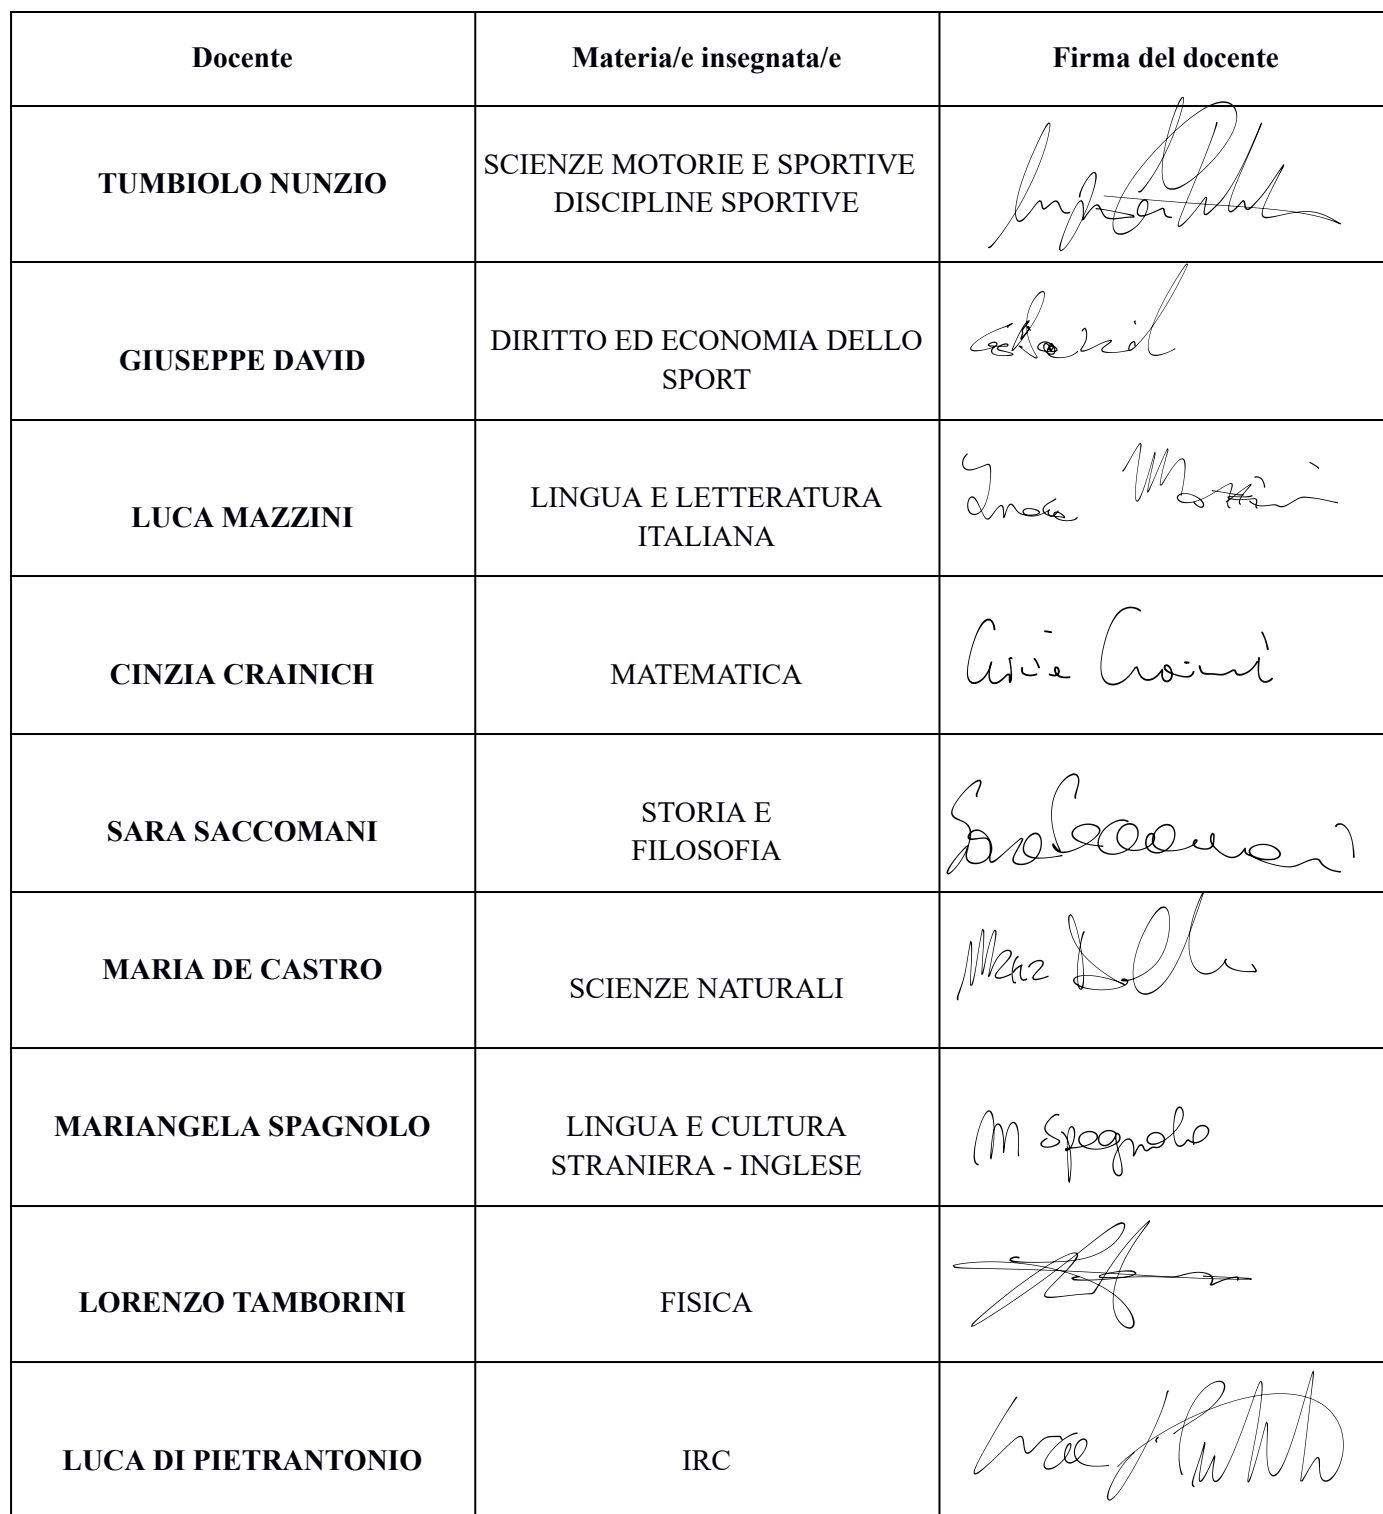 Docente
Materia/e insegnata/e
Firma del docente
TUMBIOLO NUNZIO
SCIENZE MOTORIE E SPORTIVE
DISCIPLINE SPORTIVE
GIUSEPPE DAVID
DIRITTO ED ECONOMIA DELLO
SPORT
GDavid
LUCA MAZZINI
LINGUA E LETTERATURA
ITALIANA
Luca Mazzini
CINZIA CRAINICH
MATEMATICA
SARA SACCOMANI
STORIA E
FILOSOFIA
Sara Saccomani
MARIA DE CASTRO
SCIENZE NATURALI
MARIANGELA SPAGNOLO
LINGUA E CULTURA
STRANIERA - INGLESE
M Spagnolo
LORENZO TAMBORINI
FISICA
LUCA DI PIETRANTONIO
IRC
Luca